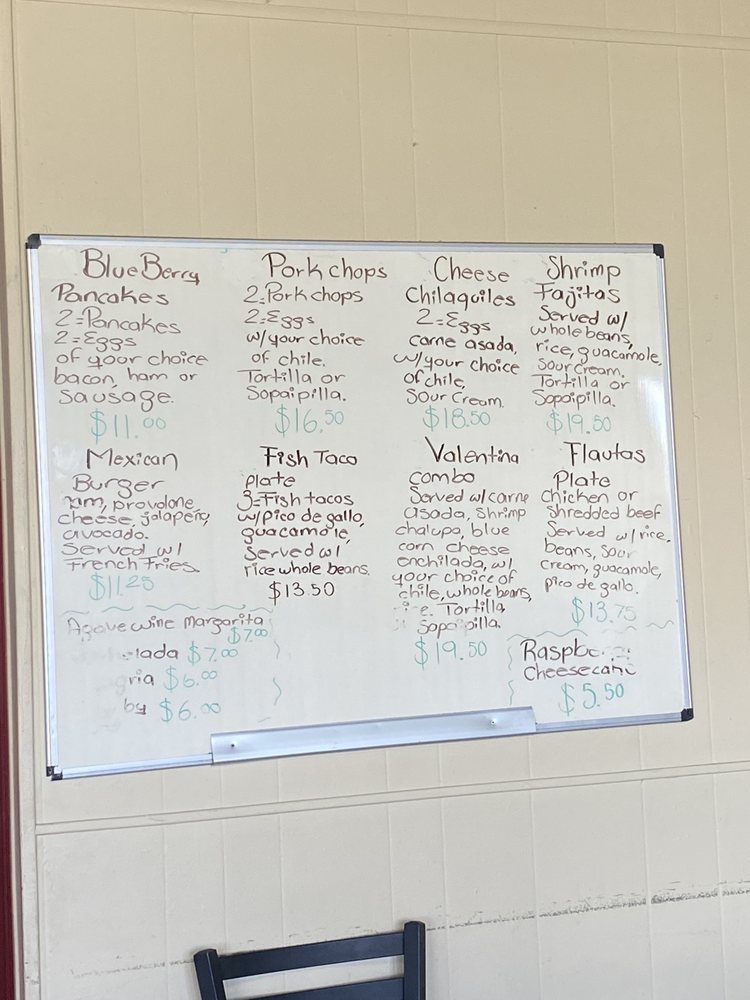 BlueBerry
Pancakes
2=Pancakes
2=Eggs
of your choice
bacon, ham or
Sausage.
$11.00
Pork chops
2=Pork chops
2=Eggs
w/your choice
of chile.
Tortilla or
Sopaipilla.
$16.50
Cheese
Chilaquiles
2=Eggs
carne asada,
w/your choice
of chile,
Sour Cream.
$18.50
Shrimp
Fajitas
Served w/
whole beans,
rice, guacamole,
Sour Cream.
Tortilla or
Sopaipilla.
$19.50
Mexican
Burger
provolone
cheese, jalapeño,
avocado.
Served w/
French Fries
$11.25
Fish Taco
plate
3=Fish tacos
w/pico de gallo,
guacamole,
Served w/
rice whole beans.
$13.50
Valentina
combo
Served w/carne
asada, Shrimp
chalupa, blue
corn cheese
enchilada, w/
your choice of
chile, whole beans,
Tortilla
Sopaipilla.
$19.50
Flautas
Plate
Chicken or
Shredded beef
Served w/rice,
beans, Sour
cream, guacamole,
pico de gallo.
$13.75
Agave wine Margarita
$7.00
$7.00
$6.00
$6.00
$5.50